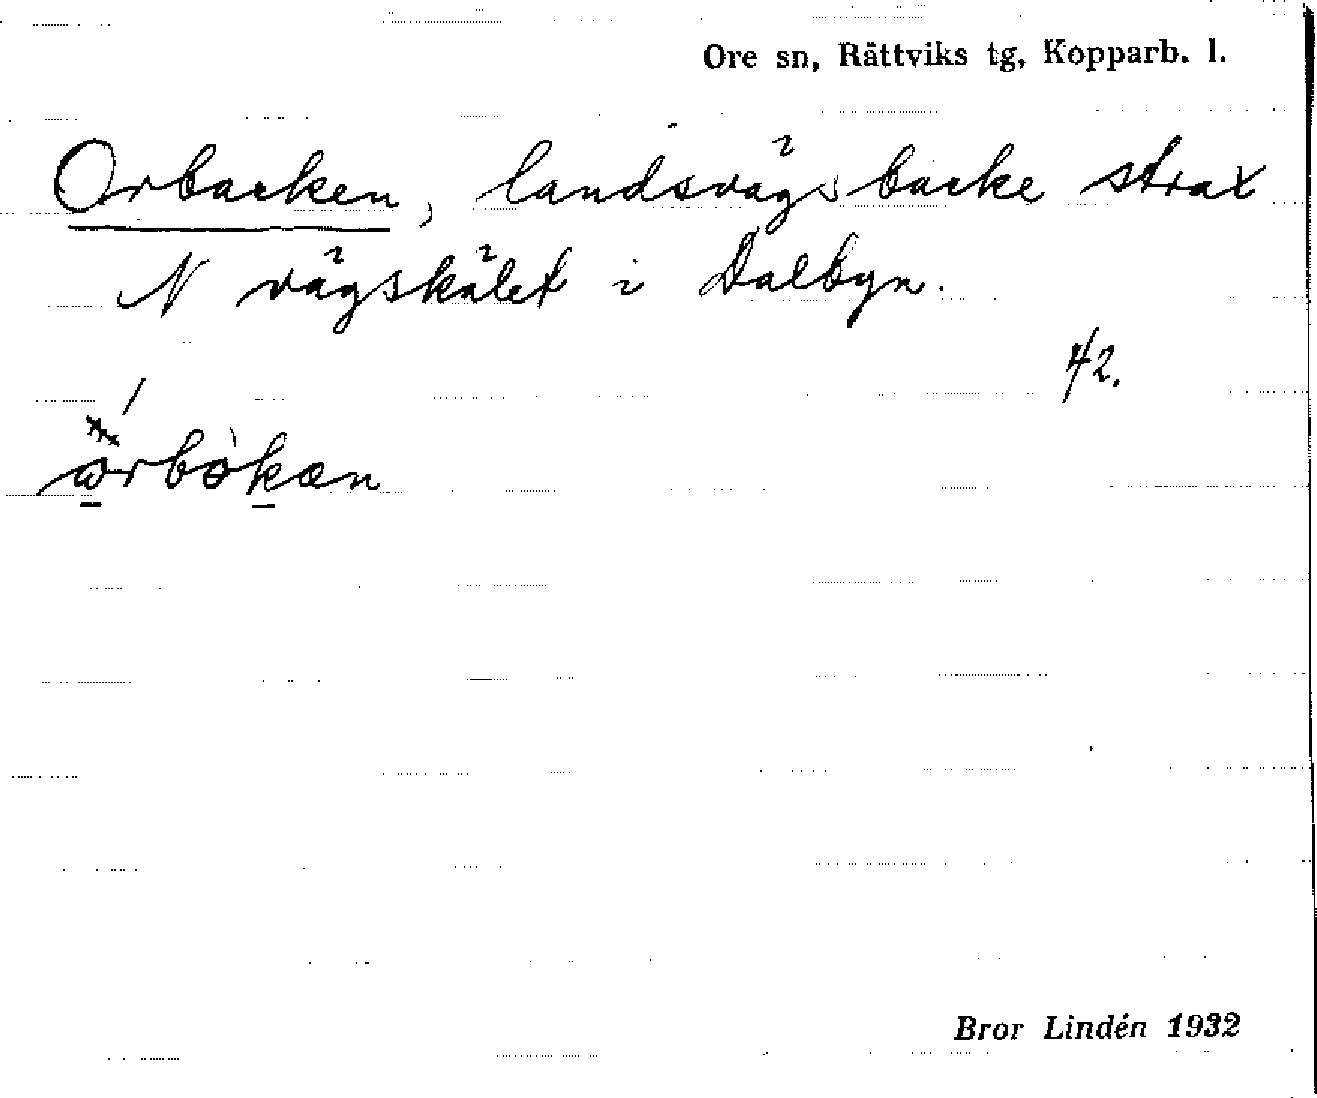 Ore sn, Rättviks tg, Kopparb. l.
Orbacken, landsvägsbacke strax
N vägskälet i Dalbyn.
42.
Bror Lindén 1932